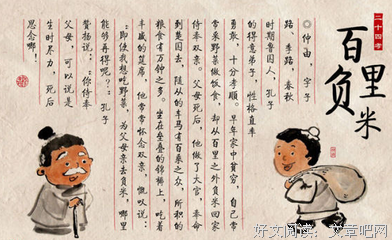 二十四孝
百里负米
◎仲由，字子
路、季路，春秋
时期鲁国人，孔子
的得意弟子，性格直率
勇敢，十分孝顺。早年家中贫穷，自己常
常采野菜做饭食，却从百里之外负米回家
侍奉双亲。父母死后，他做了大官，奉命
到楚国去，随从的车马有百乘之众，所积的
粮食有万钟之多。坐在垒叠的锦褥上，吃着
丰盛的筵席，他常常怀念双亲，慨叹说：
“即使我想吃野菜，为父母亲去负米，哪里
能够再得呢？”孔子
赞扬说：“你侍奉
父母，可以说是
生时尽力，死后
思念哪！”
好文阅读：文章吧网